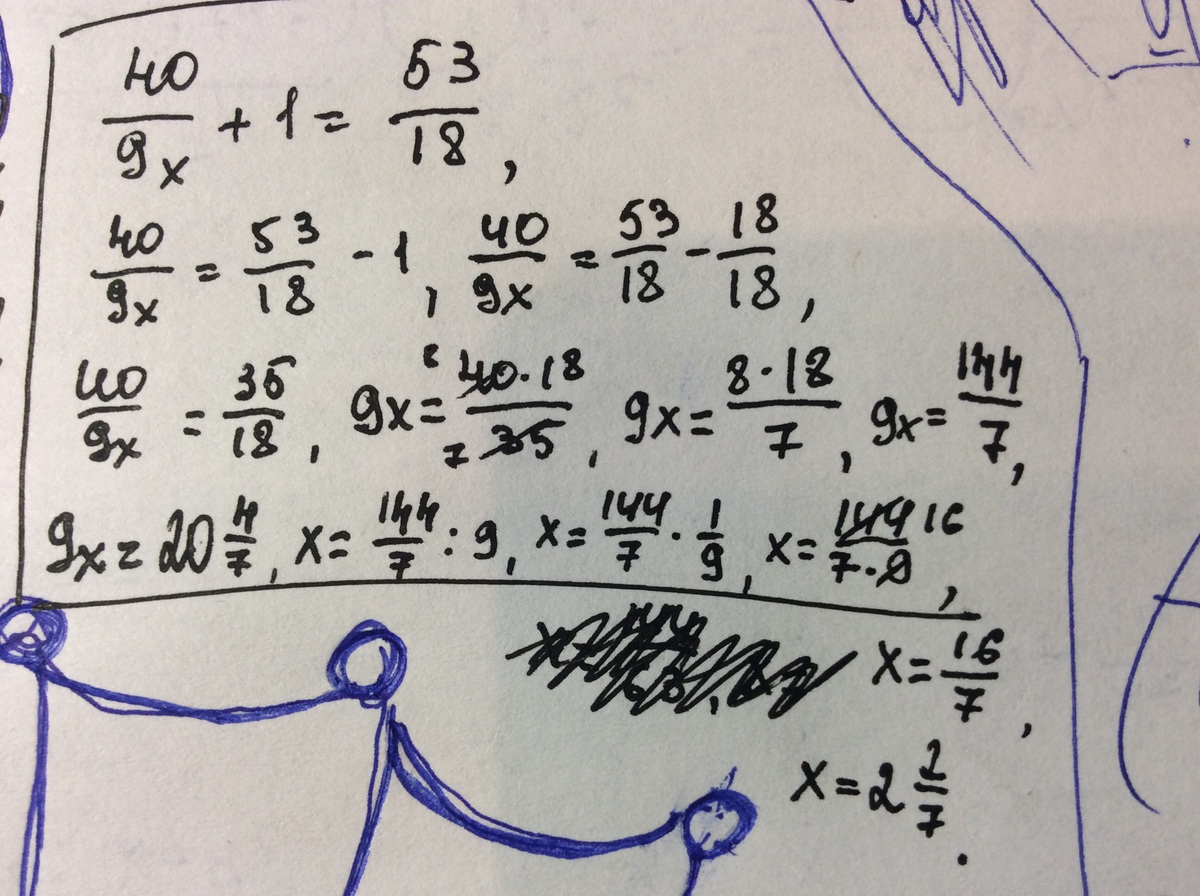 40/9x + 1 = 53/18,
40/9x = 53/18 - 1, 40/9x = 53/18 - 18/18,
40/9x = 35/18, 9x = 8 40·18/7 35, 9x = 8·18/7, 9x = 144/7,
9x = 20 4/7, x = 144/7 : 9, x = 144/7 · 1/9, x = 144 16/7·9,
x = 16/7,
x = 2 2/7.